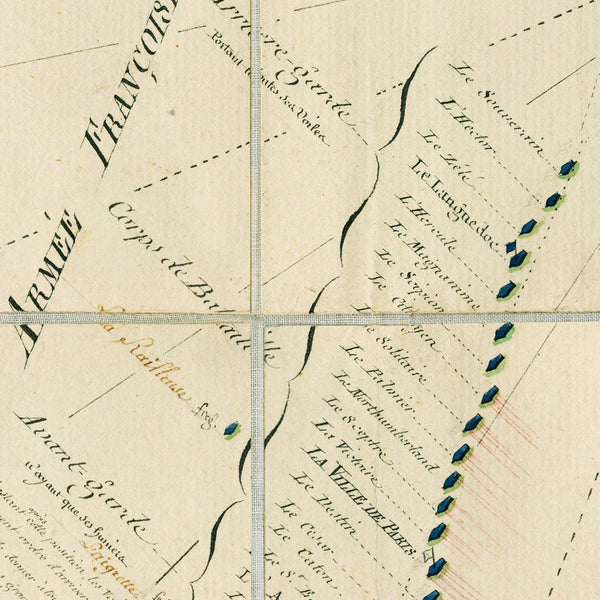 ARMÉE FRANÇOISE
Arriere-Garde
Portant toutes ses Voiles
Corps de Bataille
La Railleuse
freg.
Avant-Garde
n'ayant que ses huniers
Le Souverain
L'Hector
Le Zélé
Le Languedoc
L'Hercule
Le Magnanime
Le Scipion
Le Citoyen
Le Solitaire
Le Palmier
Le Northumberland
Le Sceptre
La Victoire
LA VILLE DE PARIS
Le Destin
Le César
Le Caton
Le St. E
L'A